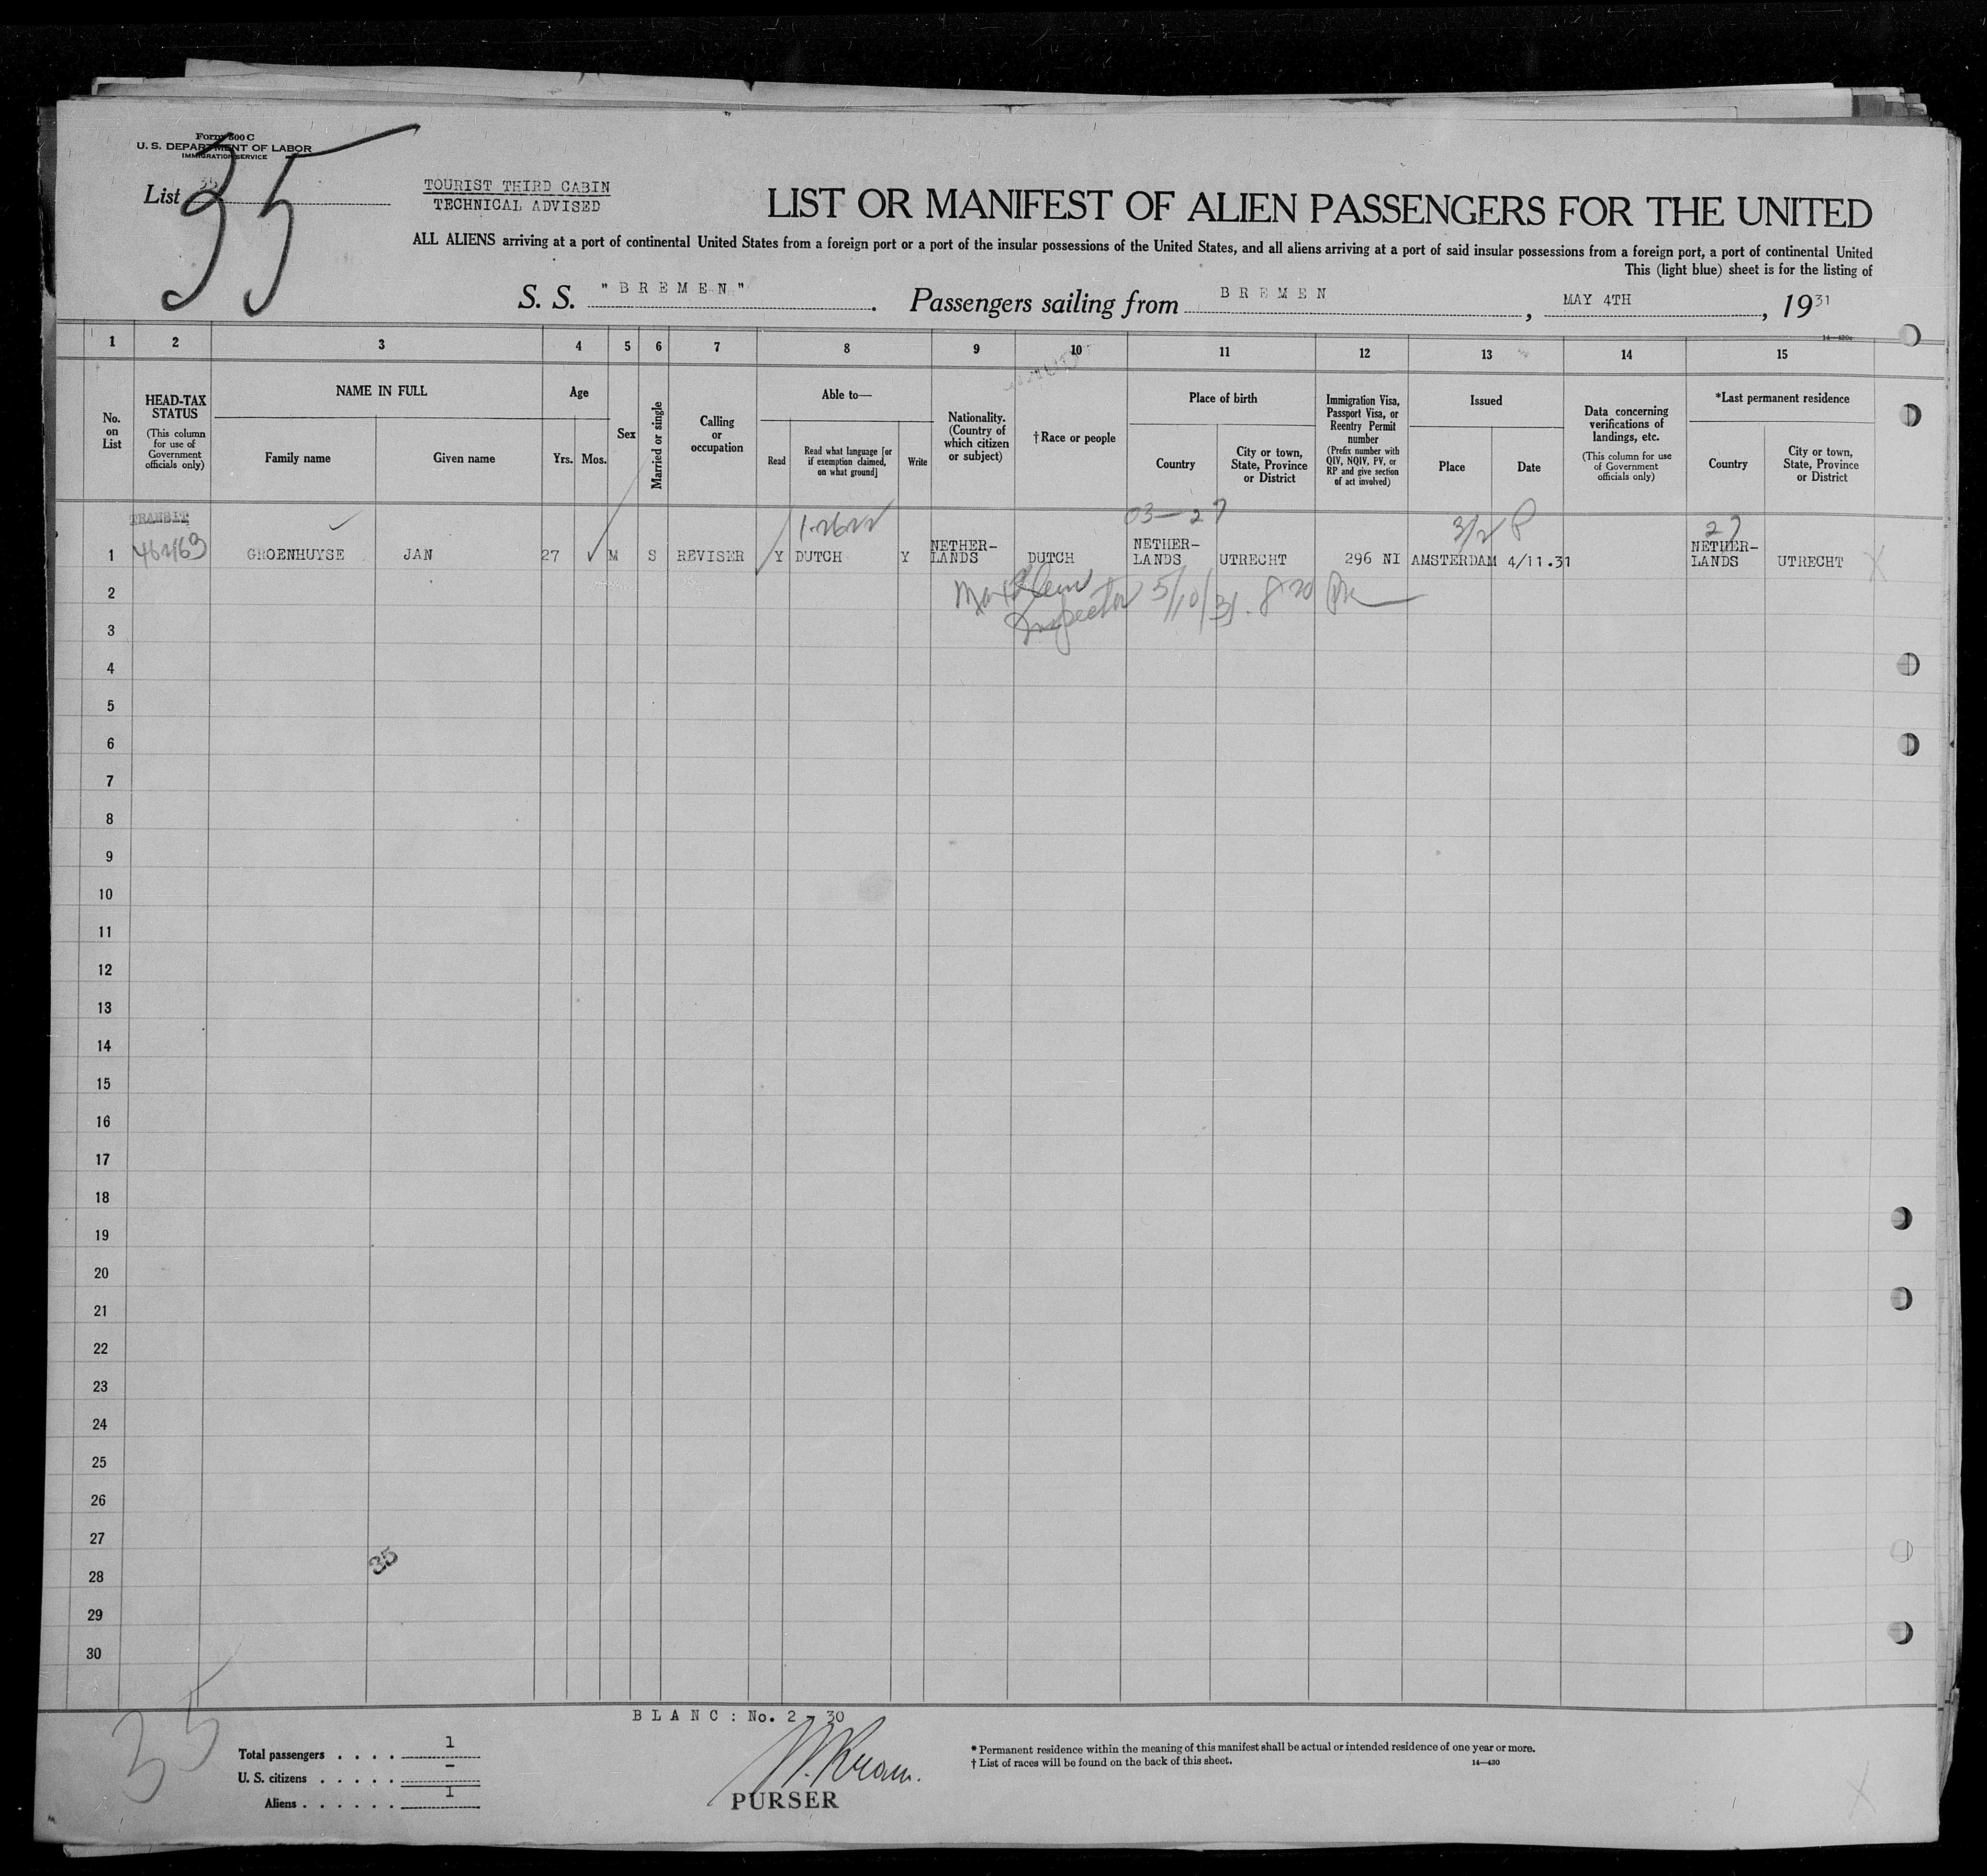 Form 500 C
U. S. DEPARTMENT OF LABOR
IMMIGRATION SERVICE
List 35
35
TOURIST THIRD CABIN
TECHNICAL ADVISED
LIST OR MANIFEST OF ALIEN PASSENGERS FOR THE UNITED
ALL ALIENS arriving at a port of continental United States from a foreign port or a port of the insular possessions of the United States, and all aliens arriving at a port of said insular possessions from a foreign port, a port of continental United
This (light blue) sheet is for the listing of
S. S. "BREMEN". Passengers sailing from BREMEN, MAY 4TH, 1931
14—430c
1 2 3 4 5 6 7 8 9 10 11 12 13 14 15
No. on List
HEAD-TAX STATUS
(This column for use of Government officials only)
NAME IN FULL
Family name
Given name
Age
Yrs.
Mos.
Sex
Married or single
Calling or occupation
Able to—
Read
Read what language [or if exemption claimed, on what ground]
Write
Nationality. (Country of which citizen or subject)
†Race or people
Place of birth
Country
City or town, State, Province or District
Immigration Visa, Passport Visa, or Reentry Permit number
(Prefix number with QIV, NQIV, PV, or RP and give section of act involved)
Issued
Place
Date
Data concerning verifications of landings, etc.
(This column for use of Government officials only)
*Last permanent residence
Country
City or town, State, Province or District
TRANSIT
03—27
27
1 GROENHUYSE JAN 27 M S REVISER Y DUTCH Y NETHER-LANDS DUTCH NETHER-LANDS UTRECHT 296 NI AMSTERDAM 4/11.31 NETHER-LANDS UTRECHT
2
Inspector 5/10/31. 8 20 PM
3
4
5
6
7
8
9
10
11
12
13
14
15
16
17
18
19
20
21
22
23
24
25
26
27
35
28
29
30
35
BLANC: No. 2 - 30
Total passengers . . . . 1
U. S. citizens . . . . . –
Aliens . . . . . . 1
PURSER
* Permanent residence within the meaning of this manifest shall be actual or intended residence of one year or more.
† List of races will be found on the back of this sheet.
14—430